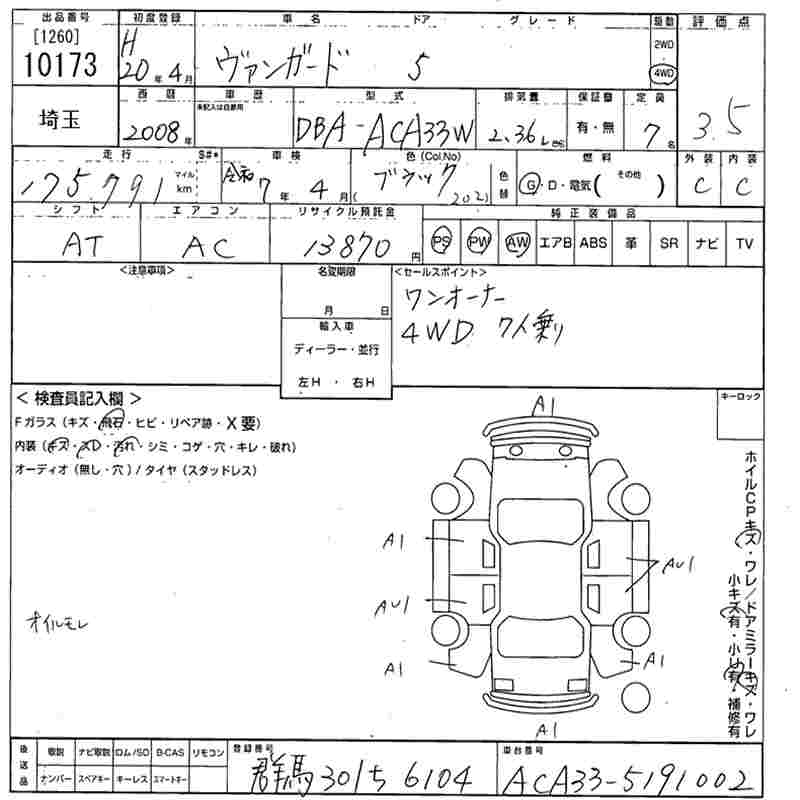 出品番号 初度登録 車名 ドア グレード 駆動 評価点
[1260] H 2WD
10173 20年4月 ヴァンガード 5 4WD
西暦 車歴 型式 排気量 保証書 定員
未記入は自家用
埼玉 2008年 DBA-ACA33W 2.36 有・無 7名 3.5
走行 S#* 車検 色(Col.No) 燃料 外装 内装
175,791 マイル km 令和7年4月 ブラック (202) 色替 G・D・電気( その他 ) C C
シフト エアコン リサイクル預託金 純正装備品
AT AC 13870円 PS PW AW エアB ABS 革 SR ナビ TV
<注意事項> 名変期限 <セールスポイント>
月 日 ワンオーナー
輸入車 4WD 7人乗り
ディーラー・並行
左H ・ 右H
<検査員記入欄> キーロック
Fガラス(キズ・飛石・ヒビ・リペア跡・X要)
内装(キズ・スレ・汚れ・シミ・コゲ・穴・キレ・破れ)
オーディオ(無し・穴)/タイヤ(スタッドレス)
A1
A1 AU1
AU1
A1 A1
A1
オイルモレ
ホイルCPキズ・ワレ/ドアミラーキズ・ワレ
小キズ有・小U有・補修有
後送品 取説 ナビ取説 ロム/SD B-CAS リモコン 登録番号 車台番号
ナンバー スペアキー キーレス スマートキー 群馬301ち6104 ACA33-5191002